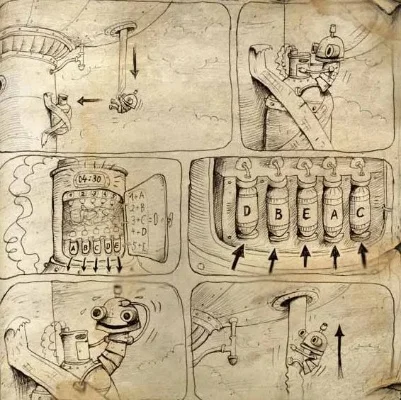 04:30
1=A
2=B
3=C
4=D
5=E
=D
A B C D E
D B E A C